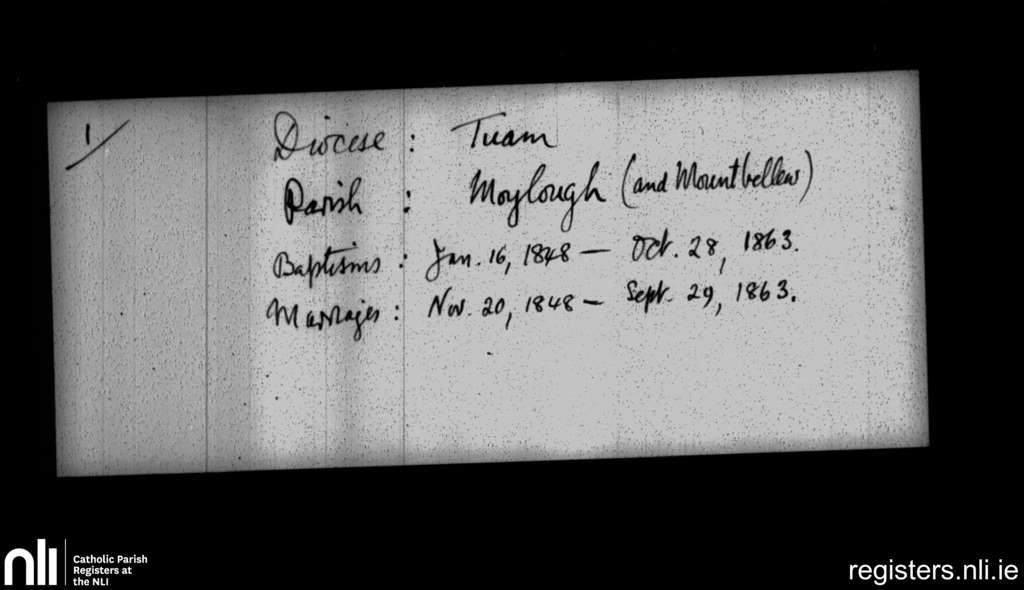 1/
Diocese : Tuam
Parish : Moylough (and Mountbellew)
Baptisms : Jan. 16, 1848 — Oct. 28, 1863.
Marriages : Nov. 20, 1848 — Sept. 29, 1863.
nli
Catholic Parish
Registers at
the NLI
registers.nli.ie